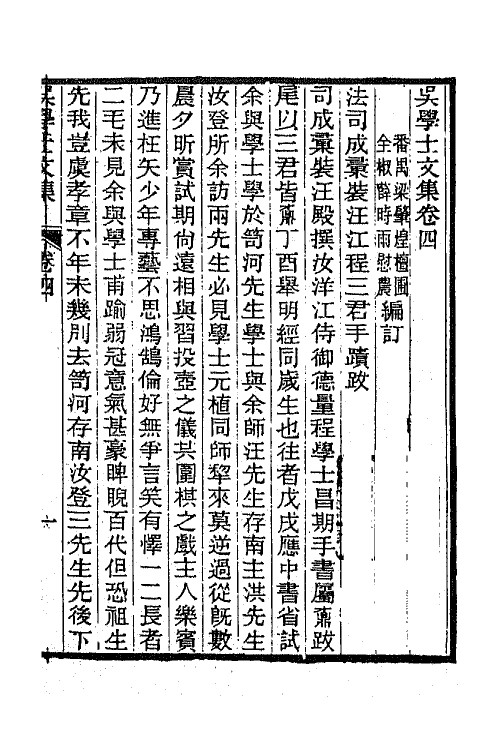 吳學士文集卷四
番禺梁肇煌檀圃
全椒薛時雨慰農
編訂
法司成彙裝汪江程三君手蹟跋
司成彙裝汪殿撰汝洋江侍御德量程學士昌期手書屬鼒跋
尾以三君皆鼒丁酉舉明經同歲生也往者戊戌應中書省試
余與學士學於笥河先生學士與余師汪先生存南主洪先生
汝登所余訪兩先生必見學士元植同師犂來莫逆過從既數
晨夕昕賞試期尙遠相與習投壺之儀共圍棋之戲主人樂賓
乃進枉矢少年專藝不思鴻鵠倫好無爭言笑有懌一二長者
二毛未見余與學士甫踰弱冠意氣甚豪睥睨百代但恐祖生
先我豈虞孝章不年未幾別去笥河存南汝登三先生先後下
吳學士文集
卷四
一